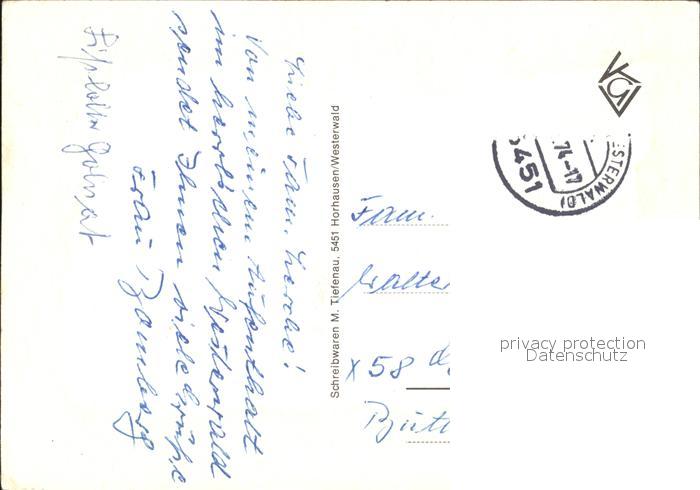 Liebe Fam. Lerche!
Von meinem Aufenthalt
im herrlichen Westerwald
sendet Ihnen viele Grüße
Frau
Schreibwaren M. Tiefenau, 5451 Horhausen/Westerwald
5451
74-17
ESTERWALD)
Fam.
Walte
x 58
Bütt
privacy protection
Datenschutz